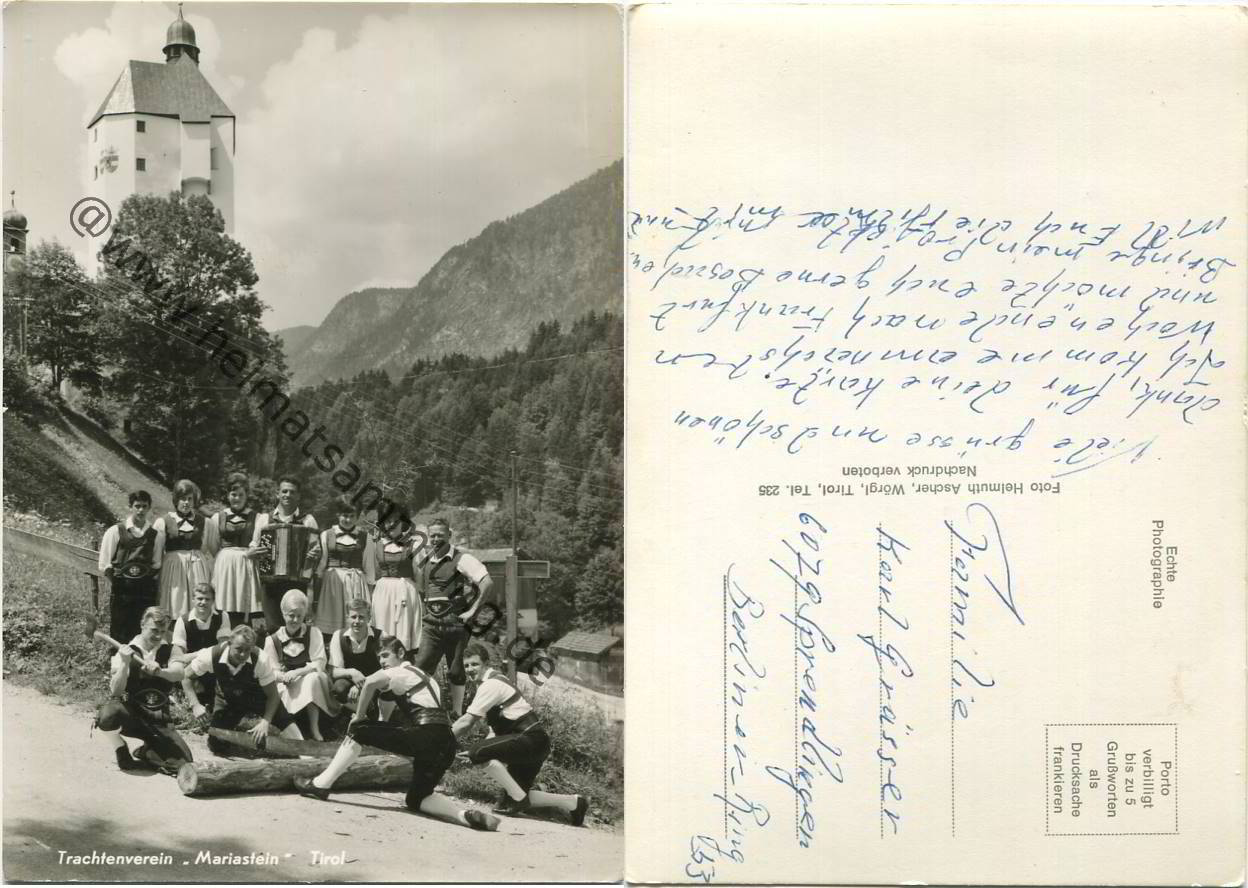 Trachtenverein „Mariastein" Tirol
@ www.heimatsammlung.de
Viele grüsse und schönen
dank, für deine karte.
Ich komme am nerchsten
Wochenende nach Frankfurt
und möchte euch gerne besuchen.
Bringe mein Projektor mit und
will Euch die Filme
Foto Helmuth Ascher, Wörgl, Tirol, Tel. 235
Nachdruck verboten
Echte
Photographie
Porto
verbilligt
bis zu 5
Grußworten
als
Drucksache
frankieren
Familie
Karl Grässer
6079 Sprendlingen
Berliner-Ring